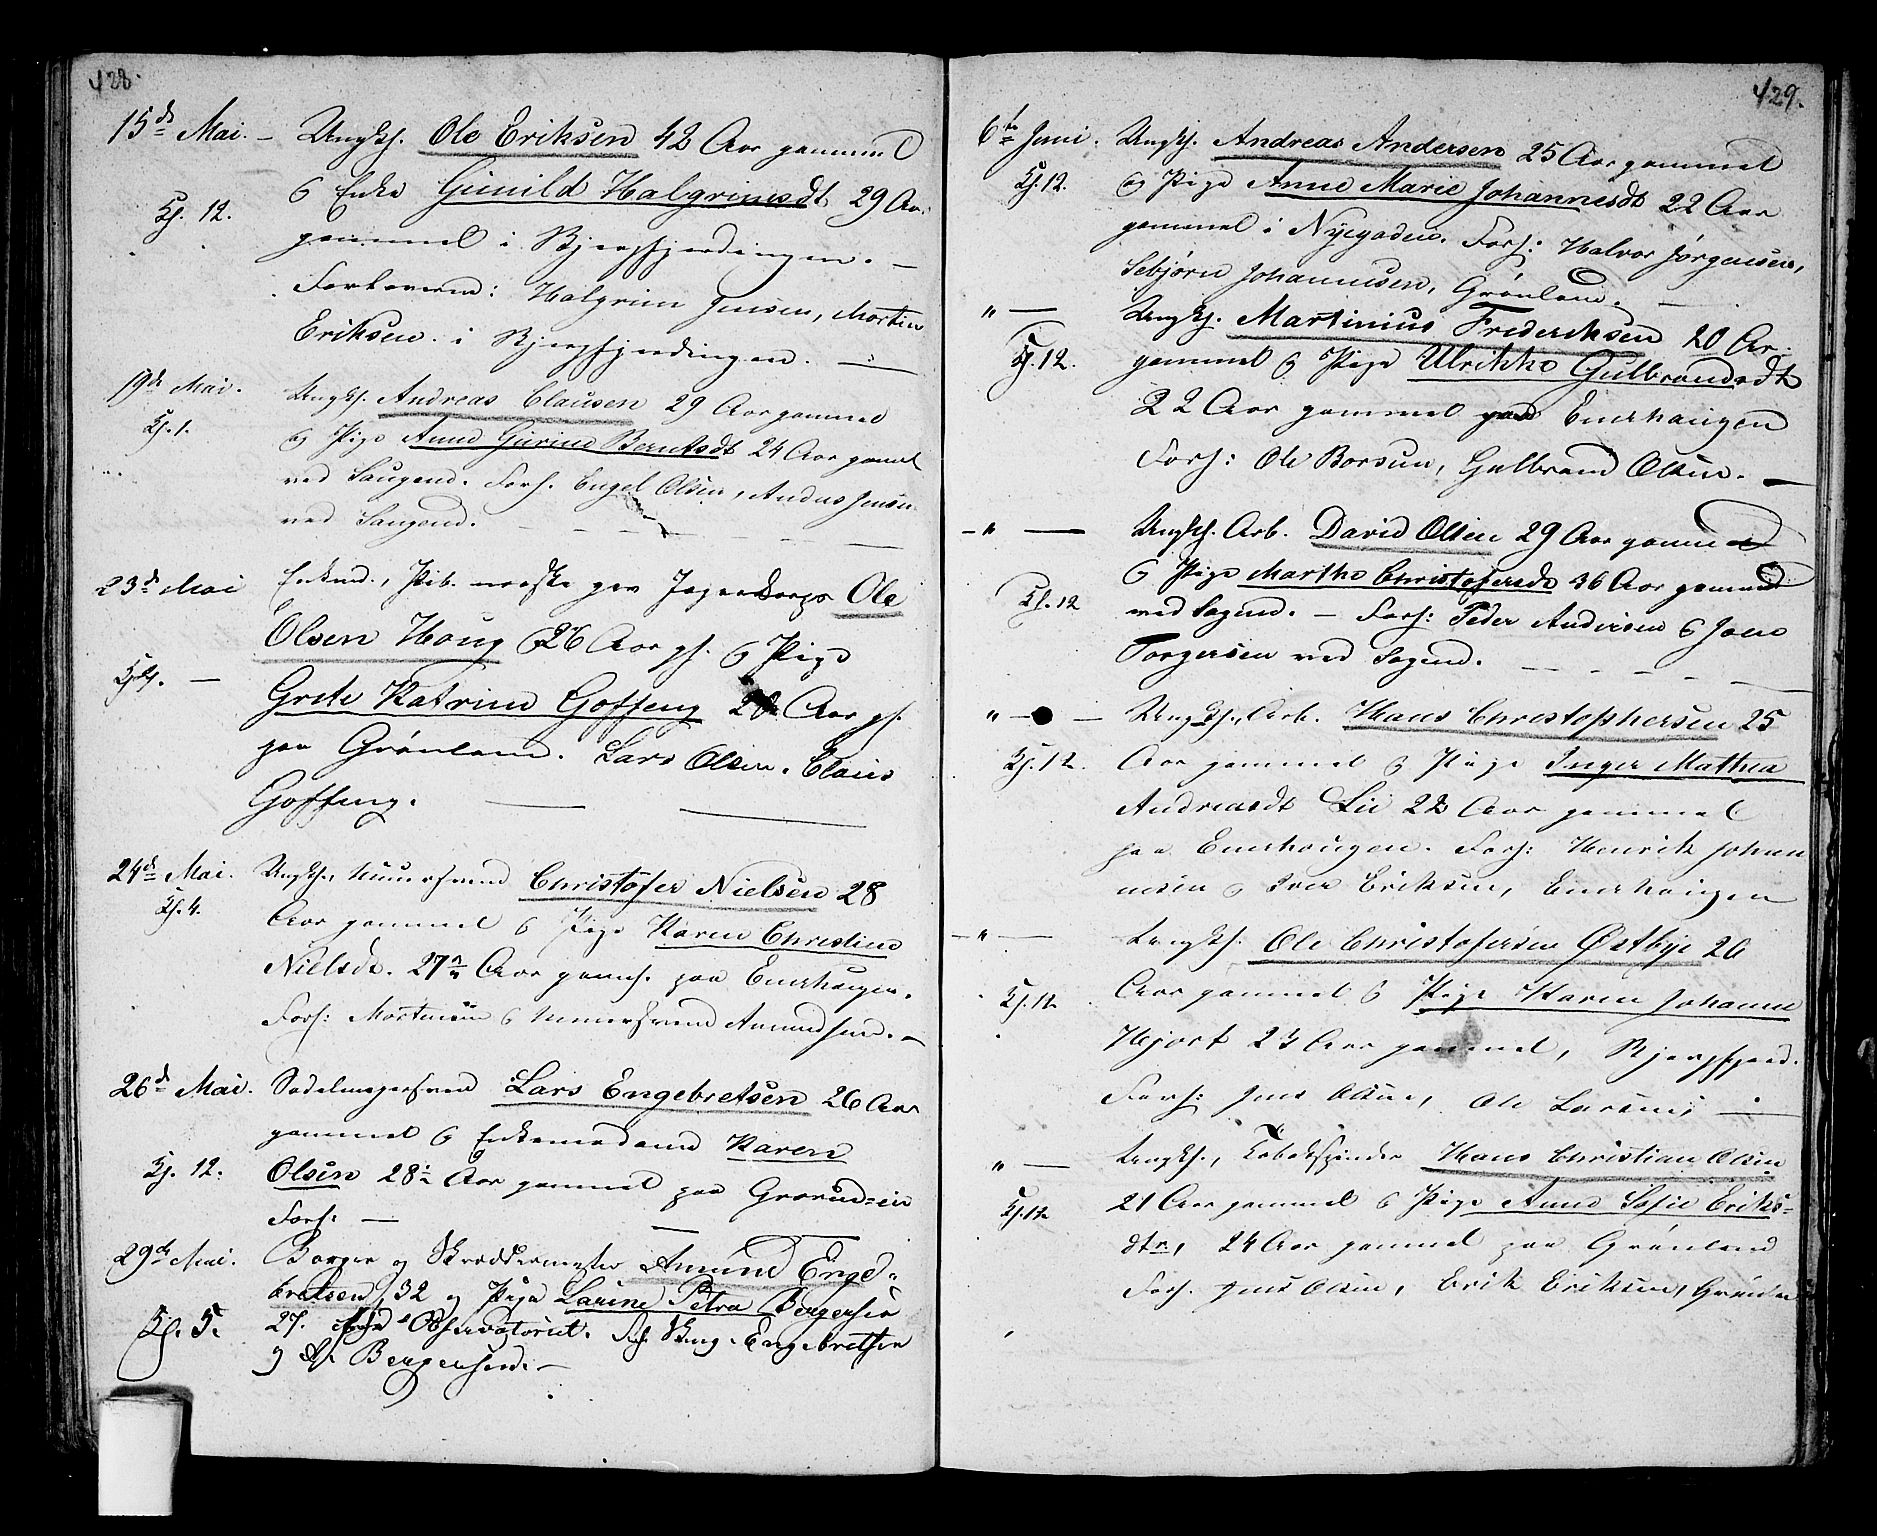 428.
15de Mai. – Ungk. Ole Eriksen 42 Aar gammel
Kl. 12. & Enke Gunild Halgrimsdt 29 Aar
gammel i Bjergfjerdingen. –
Forlovere: Halgrim Jensen, Morten
Eriksen i Bjergfjerdingen. –
19de Mai. Ungk. Andreas Clausen 29 Aar gammel
Kl. 1. & Pige Anne Gurine Berntsdt 24 Aar gaml
ved Saugene. Forl. Engel Olsen, Andreas Jensen
ved Saugene.
23de Mai Enkemd., norske Jægerkorps Ole
Olsen Houg 26 Aar gl. & Pige
Grete Katrine Goffeng 28 Aar gl.
paa Grønland. Lars Olsen. Claus
Goffeng.
24de Mai. Ungk., Murersvend Christofer Nielsen 28
Kl. 4. Aar gammel & Pige Karen Christine
Nielsdt. 27 Aar gammel paa Enerhaugen.
Forl: Mortensen & Murersvend Amundsen. –
26de Mai. Sadelmagersvend Lars Engebretsen 26 Aar
gammel & Enkemadame Karen
Kl. 12. Olsen 28 Aar gammel paa
Forl: –
29de Mai. Borger og Skreddermester Amund Enge-
bretsen 32 og Pige Larine Petra Bergersen
Kl. 5. 27. Observatoriet. Engebretsen
og Bergersen. –
429.
6te Juni. Ungk. Andreas Andersen 25 Aar gammel
Kl. 12. & Pige Anne Marie Johannesdt 22 Aar
gammel i Nyegaden. Forl: Halvor Jørgensen,
Sebjørn Johannesen, Grønland.
" – Ungk. Martinius Frederiksen 20 Ar.
Kl. 12. gammel & Pige Ulrikke Gulbrandsdt
22 Aar gammel paa Enerhaugen
Forl: Ole Borsun, Gulbrand Olsen. –
– " – Ungk. Arb. David Olsen 29 Aar gammel
& Pige Marthe Christofersdt 36 Aar gammel
Kl. 12 ved Sagene. – Forl: Peder Andersen &
Torgersen ved Sagene.
" – – Ungk., Arb. Hans Christophersen 25
Kl. 12. Aar gammel & Pige Inger Mathea
Andreasdt Lie 22 Aar gammel
paa Enerhaugen. Forl: Henrik Johan
nesen & Iver Eriksen, Enerhaugen
– " – Ungk. Ole Christofersen Østbye 26
Kl. 12. Aar gammel & Pige Karen Johanne
Hjort 23 Aar gammel, Bjergfjerd.
Forl: Jens Olsen, Ole Larsens –
" – Ungk., Tobakspinder Hans Christian Olsen
Kl. 12 21 Aar gammel & Pige Anne Sofie Eriks-
dtr, 24 Aar gammel paa Grønland
Forl. Jens Olsen, Erik Eriksen, Grønlan